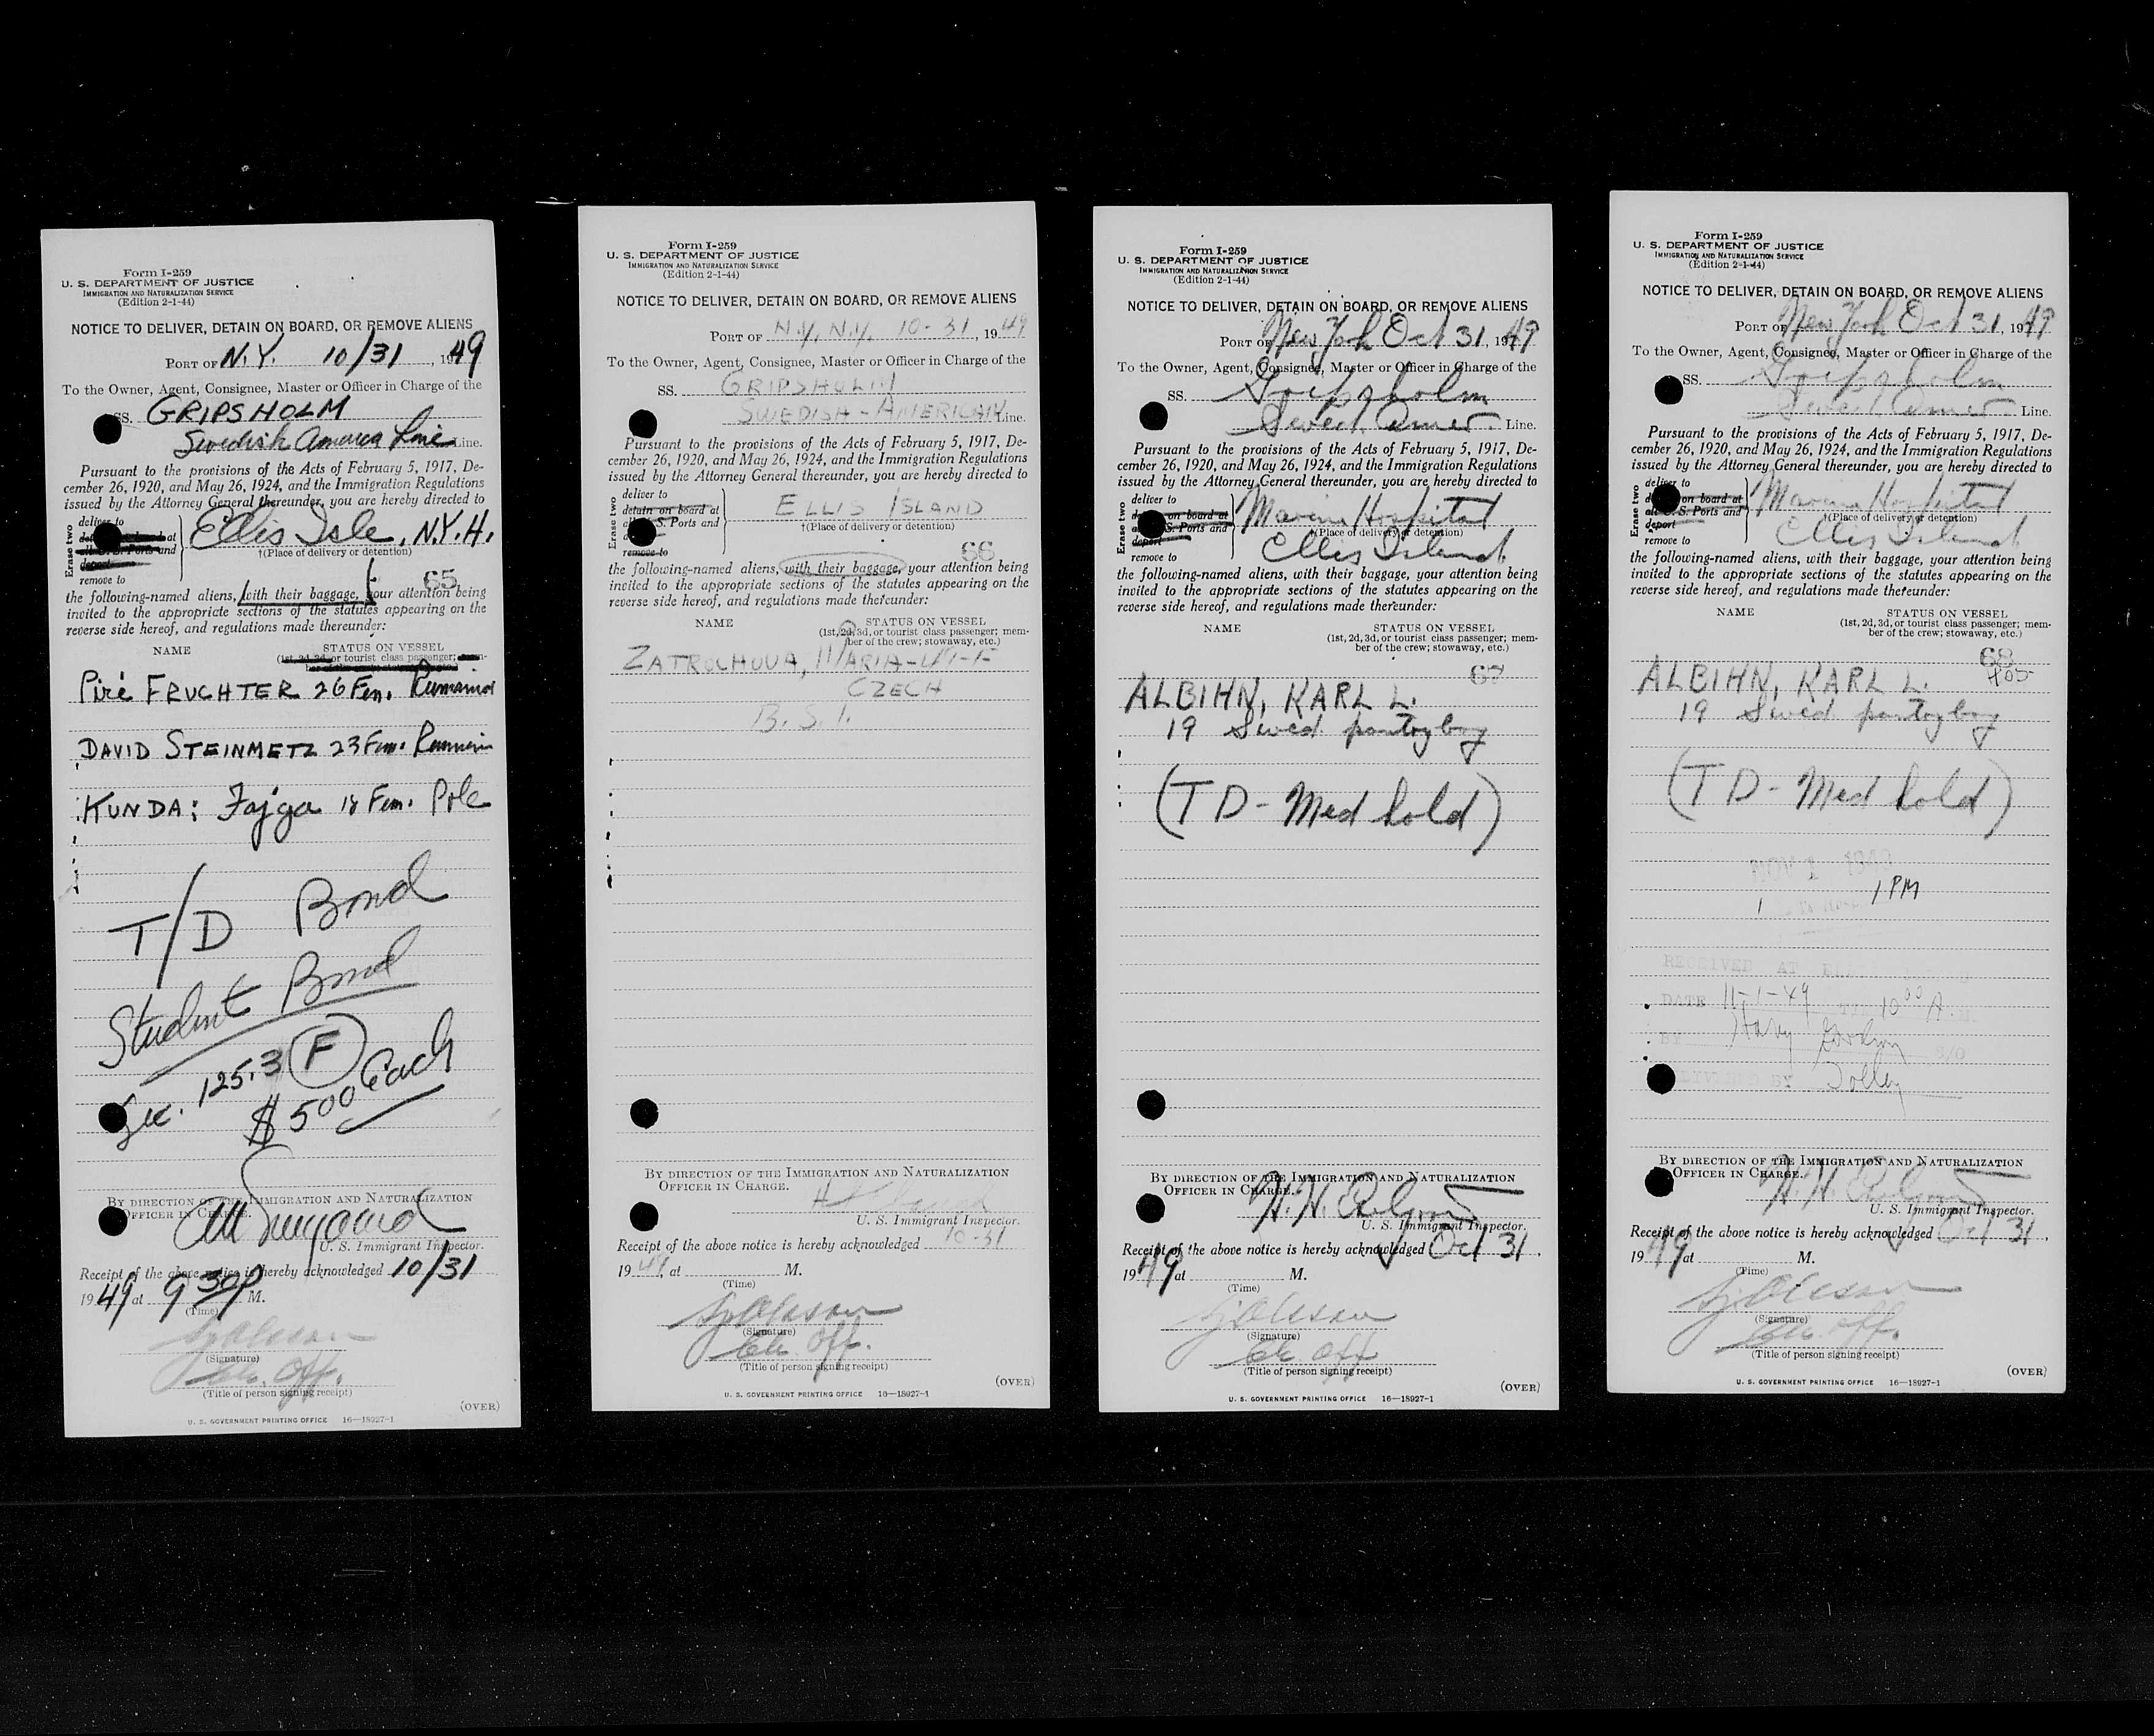 Form I-259
U. S. DEPARTMENT OF JUSTICE
IMMIGRATION AND NATURALIZATION SERVICE
(Edition 2-1-44)
NOTICE TO DELIVER, DETAIN ON BOARD, OR REMOVE ALIENS
PORT OF N.Y. 10/31, 1949
To the Owner, Agent, Consignee, Master or Officer in Charge of the
SS. GRIPSHOLM
Swedish America Line Line.
Pursuant to the provisions of the Acts of February 5, 1917, De-
cember 26, 1920, and May 26, 1924, and the Immigration Regulations
issued by the Attorney General thereunder, you are hereby directed to
Erase two
deliver to
at
all U. S. Ports and
deport
remove to
Ellis Isle, N.Y.H.
†(Place of delivery or detention)
65
the following-named aliens, with their baggage, your attention being
invited to the appropriate sections of the statutes appearing on the
reverse side hereof, and regulations made thereunder:
NAME STATUS ON VESSEL
(1st, 2d, 3d, or tourist class passenger; mem-
Piré FRUCHTER 26 Fem.
DAVID STEINMETZ 23 Fem.
KUNDA: Fajga 18 Fem. Pole
T/D Bond
Student Bond
Sec. 125.3 (F)
$500 each
BY DIRECTION OF THE IMMIGRATION AND NATURALIZATION
OFFICER IN CHARGE.
U. S. Immigrant Inspector.
Receipt of the above notice is hereby acknowledged 10/31
1949 at 9 30 P M.
(Time)
(Signature)
Ch. Off.
(Title of person signing receipt)
(OVER)
U. S. GOVERNMENT PRINTING OFFICE 16—18927-1
Form I-259
U. S. DEPARTMENT OF JUSTICE
IMMIGRATION AND NATURALIZATION SERVICE
(Edition 2-1-44)
NOTICE TO DELIVER, DETAIN ON BOARD, OR REMOVE ALIENS
PORT OF N.Y., N.Y. 10-31, 1949
To the Owner, Agent, Consignee, Master or Officer in Charge of the
SS. GRIPSHOLM
SWEDISH-AMERICAN Line.
Pursuant to the provisions of the Acts of February 5, 1917, De-
cember 26, 1920, and May 26, 1924, and the Immigration Regulations
issued by the Attorney General thereunder, you are hereby directed to
Erase two
deliver to
detain on board at
all U. S. Ports and
remove to
ELLIS ISLAND
†(Place of delivery or detention)
66
the following-named aliens, with their baggage, your attention being
invited to the appropriate sections of the statutes appearing on the
reverse side hereof, and regulations made thereunder:
NAME STATUS ON VESSEL
(1st, 2d, 3d, or tourist class passenger; mem-
ber of the crew; stowaway, etc.)
ZATROCHOVA, MARIA-49-F
CZECH
B.S.I.
BY DIRECTION OF THE IMMIGRATION AND NATURALIZATION
OFFICER IN CHARGE.
U. S. Immigrant Inspector.
Receipt of the above notice is hereby acknowledged 10-31
1949, at M.
(Time)
(Signature)
Ch. Off.
(Title of person signing receipt)
(OVER)
U. S. GOVERNMENT PRINTING OFFICE 16—18927-1
Form I-259
U. S. DEPARTMENT OF JUSTICE
IMMIGRATION AND NATURALIZATION SERVICE
(Edition 2-1-44)
NOTICE TO DELIVER, DETAIN ON BOARD, OR REMOVE ALIENS
PORT OF New York Oct 31, 1949
To the Owner, Agent, Consignee, Master or Officer in Charge of the
SS. Gripsholm
Swed. Amer. Line.
Pursuant to the provisions of the Acts of February 5, 1917, De-
cember 26, 1920, and May 26, 1924, and the Immigration Regulations
issued by the Attorney General thereunder, you are hereby directed to
Erase two
deliver to
detain on board at
all U. S. Ports and
deport
remove to
Marine Hospital
†(Place of delivery or detention)
Ellis Island
the following-named aliens, with their baggage, your attention being
invited to the appropriate sections of the statutes appearing on the
reverse side hereof, and regulations made thereunder:
NAME STATUS ON VESSEL
(1st, 2d, 3d, or tourist class passenger; mem-
ber of the crew; stowaway, etc.)
67
ALBIHN, KARL L.
19 Swed pantryboy
(TD - Med hold)
BY DIRECTION OF THE IMMIGRATION AND NATURALIZATION
OFFICER IN CHARGE.
U. S. Immigrant Inspector.
Receipt of the above notice is hereby acknowledged Oct 31,
1949 at M.
(Time)
(Signature)
Ch Off
(Title of person signing receipt)
(OVER)
U. S. GOVERNMENT PRINTING OFFICE 16—18927-1
Form I-259
U. S. DEPARTMENT OF JUSTICE
IMMIGRATION AND NATURALIZATION SERVICE
(Edition 2-1-44)
NOTICE TO DELIVER, DETAIN ON BOARD, OR REMOVE ALIENS
PORT OF New York Oct 31, 1949
To the Owner, Agent, Consignee, Master or Officer in Charge of the
SS. Gripsholm
Swed. Amer. Line.
Pursuant to the provisions of the Acts of February 5, 1917, De-
cember 26, 1920, and May 26, 1924, and the Immigration Regulations
issued by the Attorney General thereunder, you are hereby directed to
Erase two
deliver to
detain on board at
all U. S. Ports and
deport
remove to
Marine Hospital
†(Place of delivery or detention)
Ellis Island
the following-named aliens, with their baggage, your attention being
invited to the appropriate sections of the statutes appearing on the
reverse side hereof, and regulations made thereunder:
NAME STATUS ON VESSEL
(1st, 2d, 3d, or tourist class passenger; mem-
ber of the crew; stowaway, etc.)
68
ALBIHN, KARL L.
19 Swed pantryboy
(TD - Med hold)
NOV 1 1949
1 PM
RECEIVED AT
DATE 11-1-49 10 00 A.M.
BY
BY
BY DIRECTION OF THE IMMIGRATION AND NATURALIZATION
OFFICER IN CHARGE.
U. S. Immigrant Inspector.
Receipt of the above notice is hereby acknowledged Oct 31,
1949 at M.
(Time)
(Signature)
Ch. Off.
(Title of person signing receipt)
(OVER)
U. S. GOVERNMENT PRINTING OFFICE 16—18927-1